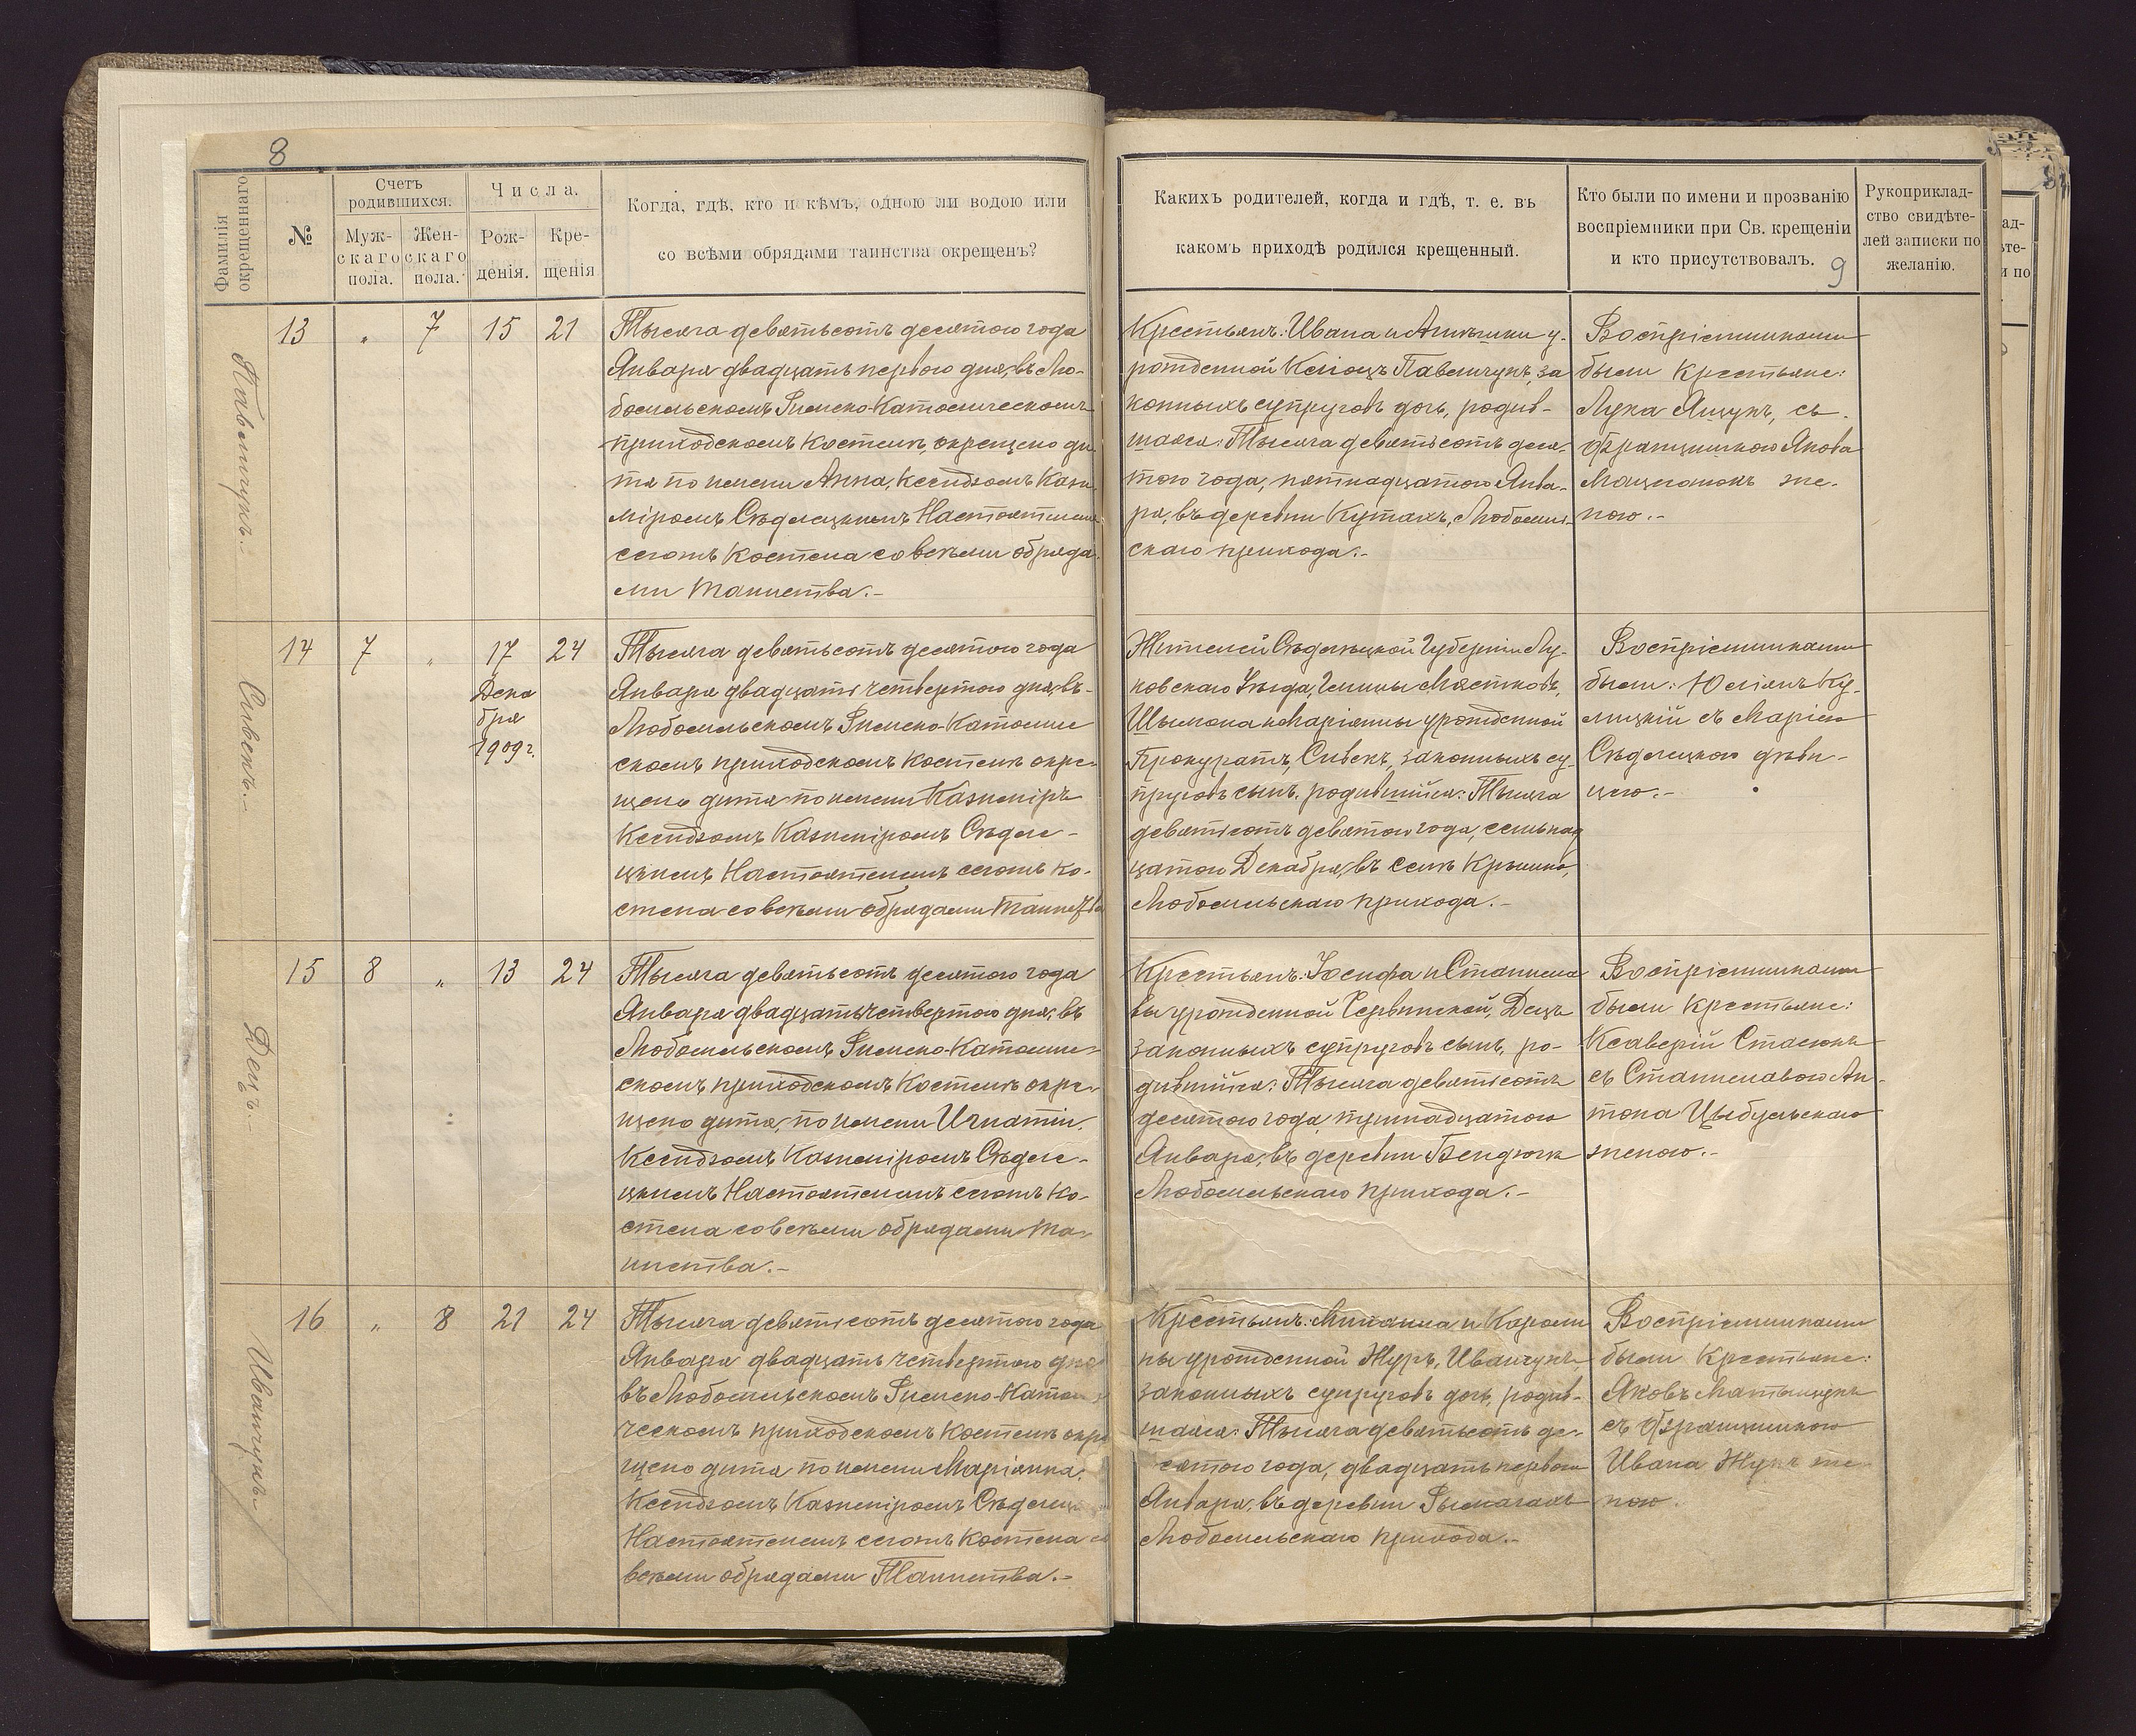 8
Фамилія окрещеннаго
№
Счетъ родившихся.
Мужскаго пола.
Женскаго пола.
Числа.
Рожденія.
Крещенія
Когда, гдѣ, кто и кѣмъ, одною ли водою или
со всѣми обрядами таинства окрещенъ?
Каких​ъ родителей, когда и гдѣ, т. е. въ
какомъ приходѣ родился крещенный.
Кто были по имени и прозванію
воспріемники при Св. крещеніи
и кто присутствовалъ.
9
Рукоприклад-
ство свидѣте-
лей записки по
желанію.
Павлищукъ.-
13 " 7 15 21
Тысяча девятьсотъ десятого года
Января двадцать первого дня, въ Лю-
бомльскомъ Римско-Католическомъ
приходскомъ Костелѣ, окрещено ди
тя по имени Анна, Ксендзомъ Кази
міромъ Сѣдлецкимъ Настоятелемъ
сегожъ Костела со всѣми обряда
ми таинства.-
Крестьянъ: Ивана и у-
рожденной Павлищукъ, за
конныхъ супруговъ дочь, родив-
шаяся: Тысяча девятьсотъ деся-
того года, пятнадцатого Янва-
ря, въ деревни Кутахъ, Любомль-
скаго прихода.-
Воспріемниками
были Крестьяне:
Лука Ящукъ, съ
Францишкою Якова
же-
ною.-
Сивекъ.-
14 7 " 17 24
Дека
бря
1909 г.
Тысяча девятьсотъ десятого года
Января двадцать четвертого дня, въ-
Любомльскомъ Римско-Католиче
скомъ приходскомъ Костелѣ окре-
щено дитя по имени Казиміръ
Ксендзомъ Казиміромъ Сѣдле-
цкимъ Настоятелемъ сегожъ Ко-
стела со всѣми обрядами таинства
Жителей Сѣдлецкой Губерніи Лу-
ковскаго Уѣзда, Гмины Мястковъ,
Шымона и Маріянны урожденной
Прокуратъ, Сивекъ, законныхъ су-
пруговъ сынъ, родившійся: Тысяча
девятьсотъ девятого года, семьнад
цатого Декабря, въ селѣ Крымно,
Любомльскаго прихода.-
Воспріемниками
были: Юліянъ Ку-
лицкій съ Маріею
Сѣдлецкою дѣви-
цею.-
Децъ.-
15 8 " 13 24
Тысяча девятьсотъ десятого года
Января двадцать четвертого дня, въ
Любомльскомъ Римско-Католиче-
скомъ приходскомъ Костелѣ окре-
щено дитя, по имени Игнатій.
Ксендзомъ Казиміромъ Сѣдле-
цкимъ Настоятелемъ сегожъ Ко-
стела со всѣми обрядами та-
инства.-
Крестьянъ: Іосифа и Станисла
вы урожденной Сервинской, Децъ
законныхъ супруговъ сынъ, ро-
дившійся: Тысяча девятьсотъ
десятого года, тринадцатого
Января, въ деревни Бендюга
Любомльскаго прихода.-
Воспріемниками
были Крестьяне:
Ксаверій Стасюкъ
съ Станиславою Ан-
тона Цыбульскаго
женою.-
Иванчукъ.-
16 " 8 21 24
Тысяча девятьсотъ десятого года
Января двадцать четвертого дня
въ Любомльскомъ Римско-Катол
ческомъ приходскомъ Костелѣ окре
щено дитя по имени Маріянна,
Ксендзомъ Казиміромъ Сѣдлец
Настоятелемъ сегожъ Костела со
всѣми обрядами Таинства.-
Крестьянъ: Михаила и Кароли
ны урожденной Журъ, Иванчукъ
законныхъ супруговъ дочь, родив-
шаяся: Тысяча девятьсотъ де-
сятого года, двадцать первого
Января, въ деревни Рымачахъ
Любомльскаго прихода.-
Воспріемниками
были Крестьяне:
Яковъ Матыщукъ
съ Францишкою
Ивана Жукъ же
ною.